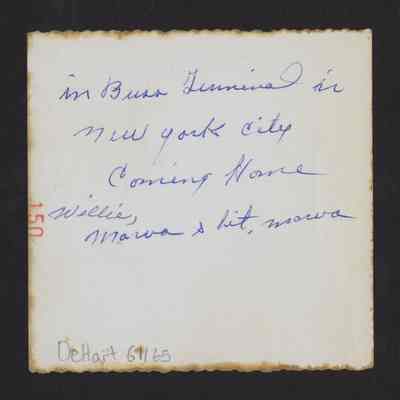 in Buss Terminal in
New york city
Coming Home
Willie,
Marva &
150
DeHart